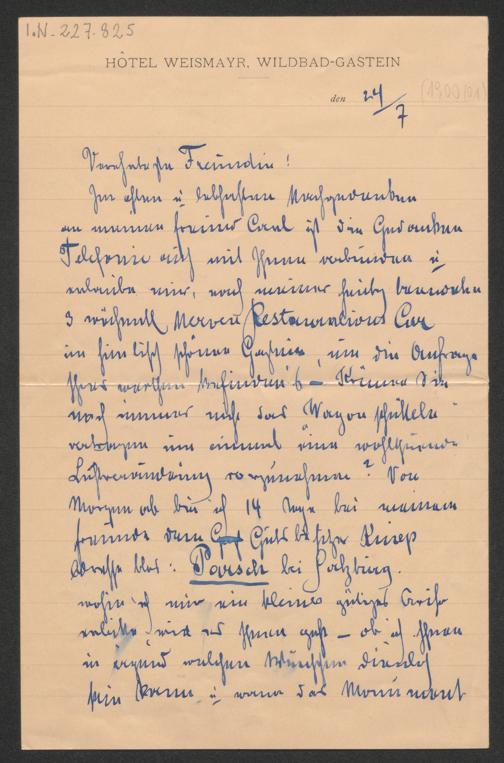 I.N. 227.825
HÔTEL WEISMAYR, WILDBAD-GASTEIN
den 24/7
(1900/01)
Verehrteste Freundin!
Im alten u lebhaften Nachgedenken
an meinen Freund Carl ist die Gedanken
Telefonie auch mit Ihnen verbunden u
erlaube mir, nach meiner heutig beendeten
3 wöchentl Nerven Restaurations Cur
im himlisch schönen Gastein, um die Anfrage
Ihres werthen Befinden's – Können Sie
noch immer nicht das Wagen schütteln
vertragen um einmal eine wohlthuende
Luftveränderung vorzunehmen? Von
Morgen ab bin ich 14 Tage bei meinem
Freunde dem Gutsbesitzer Knep
Adresse blos: Parsch bei Salzburg.
wohin ich mir ein kleines gütiges Aviso
erbitte, wie es Ihnen geht – ob ich Ihnen
in irgend welchen Wünschen dienlich
sein kann u wann das Monument